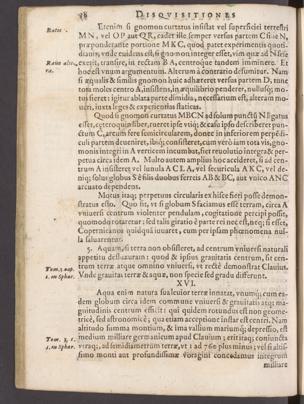 38 DISQVISITIONES
Etenim si gnomon curtatus insistat vel superficiei terrestri
MN, vel OP aut QR, cadet ille semper versus partem C siue N,
præponderante portione MKC, quod patet experimenti quoti-
diani, vnde euidens est, si gnomon integer esset, vim quæ ad N si se
exerit, transire, in rectam BA, centroque tandem imminere. Et
hoc est vnum argumentum. Alterum à contrario desumitur. Nam
si æqualis & similis gnomon huic adhæreret versus partem D, tunc
tota moles centro A, insistens, in æquilibrio penderet, nullusq; mo-
tus fieret: igitur ablata parte dimidia, necessarium est, alteram mo-
ueri, iuxta leges & experiectias staticas.
Quod si gnomon curtatus MBCN ad solum punctū N ligatus
esset, cæteroqui liber, rueret ipse vtiq; & casu ipso describeret pun-
ctum C, arcum fere semicircularem, donec in inferiorem perpēdi-
culi partem deueniret, ibiq; consisteret, cum verò iam tota vis, gno-
monis integri in A verticem incumbat, fiet reuolutio integra & per-
petua circa idem A. Multo autem amplius hoc accideret, si ad cen-
trum A insisteret vel lunula ACLA, vel securicula AKC, vel de-
niq; solus globus S è filis duabus ferreis AB & BC, aut vnico ANC
arcuato dependens.
Motus itaq; perpetuus circularis ex hisce fieri posse demon-
stratus esto. Quo sit, vt si globum S faciamus esse terram, circa A
vniuersi centrum violenter pendulam, cogitationi percipi possit,
quomodo rotaretur: sed talis giratio è parte rei nec est, neq; si esset,
Copernicanos quidquā iuuaret, cum per ipsam phænomena nul-
la saluarentur.
5. Aquam, si terra non obsisteret, ad centrum vniuersi naturali
appetitu desluxuram: quod & ipsius grauitatis centrum, sit cen-
trum terræ atque omnino vniuersi, vt rectè demonstrat Clauius.
Vnde grauitas terræ & aquæ, non specie sed gradu differunt.
XVI.
Aqua enim natura sua leuior terræ innatat, vnumq; cum ea-
dem globum circa idem commune vniuersi & grauitatis atq; ma-
gnitudinis centrum efficit: qui quidem rotundus est non geome-
tricè, sed astronomicè; qua etiam acceptione instar est centri. Nam
altitudo summa montium, & ima vallium mariumq; depressio, est
medium milliare germanicum apud Clauium; erit itaq; coniuncta
vtraq;, ad semidiametrum terræ, vt 1 ad 760 plus minus; vel si altis-
simo monti aut profundissimæ voragini concedamus integrum
milliare
Ratio altera.